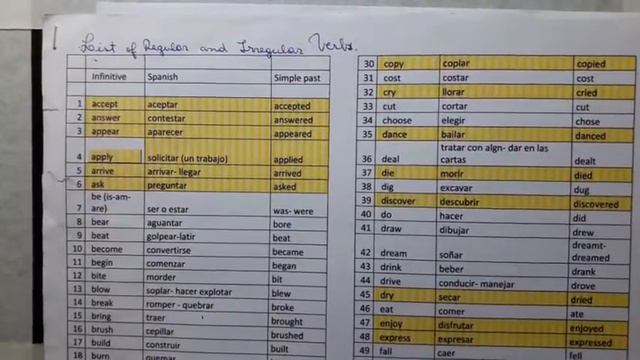 List of Regular and Irregular Verbs.
Infinitive Spanish Simple past
1 accept aceptar accepted
2 answer contestar answered
3 appear aparecer appeared
4 apply solicitar (un trabajo) applied
5 arrive arrivar- llegar arrived
6 ask preguntar asked
be (is-am-
7 are) ser o estar was- were
8 bear aguantar bore
9 beat golpear-latir beat
10 become convertirse became
11 begin comenzar began
12 bite morder bit
13 blow soplar- hacer explotar blew
14 break romper - quebrar broke
15 bring traer brought
16 brush cepillar brushed
17 build construir built
18 burn quemar
30 copy copiar copied
31 cost costar cost
32 cry llorar cried
33 cut cortar cut
34 choose elegir chose
35 dance bailar danced
tratar con algn- dar en las
36 deal cartas dealt
37 die morir died
38 dig excavar dug
39 discover descubrir discovered
40 do hacer did
41 draw dibujar drew
dreamt-
42 dream soñar dreamed
43 drink beber drank
44 drive conducir- manejar drove
45 dry secar dried
46 eat comer ate
47 enjoy disfrutar enjoyed
48 express expresar expressed
49 fall caer fell